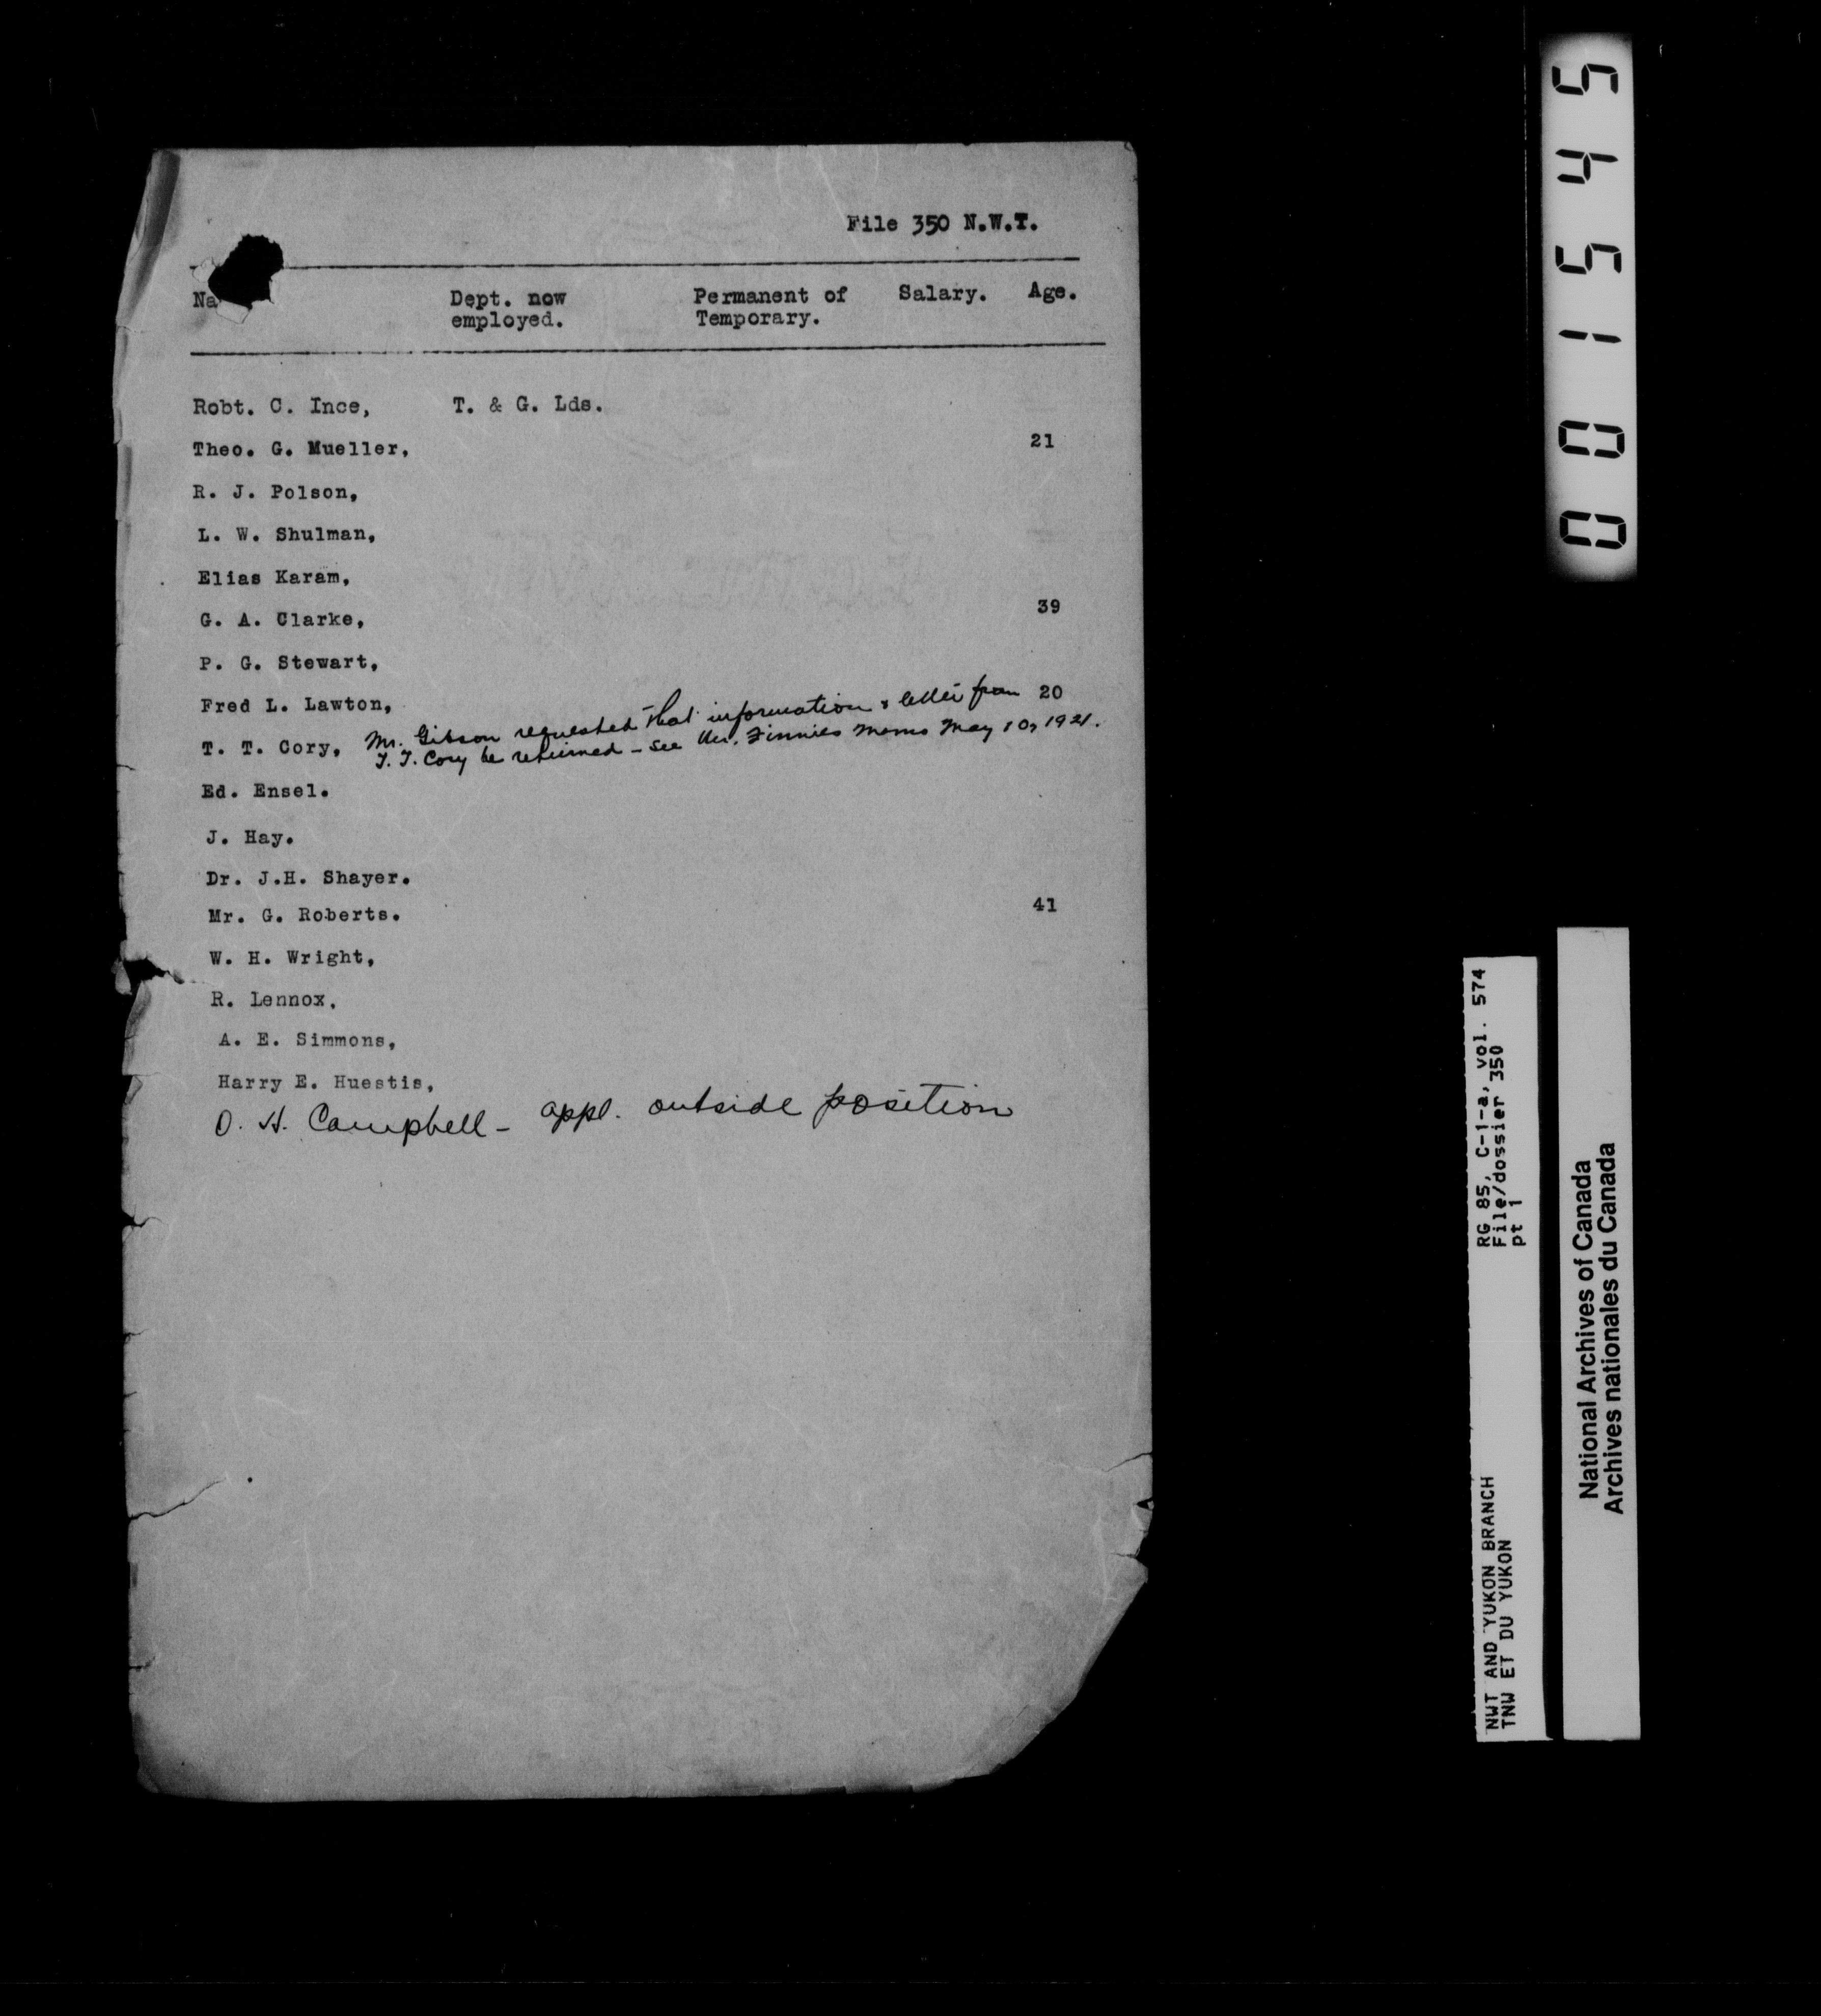 File 350 N.W.T.
Na Dept. now employed. Permanent of Temporary. Salary. Age.
Robt. C. Ince, T. & G. Lds.
Theo. G. Mueller, 21
R. J. Polson,
L. W. Shulman,
Elias Karam,
G. A. Clarke, 39
P. G. Stewart,
Fred L. Lawton, 20
T. T. Cory, Mr. Gibson requested that information & letter from
T. T. Cory be returned - see Mr. Finnies memo May 10, 1921.
Ed. Ensel.
J. Hay.
Dr. J.H. Shayer.
Mr. G. Roberts. 41
W. H. Wright,
R. Lennox,
A. E. Simmons,
Harry E. Huestis,
O. H. Campbell - appl. outside position
001545
RG 85, C-1-a, vol. 574
File/dossier 350
pt 1
NWT AND YUKON BRANCH
TNW ET DU YUKON
National Archives of Canada
Archives nationales du Canada